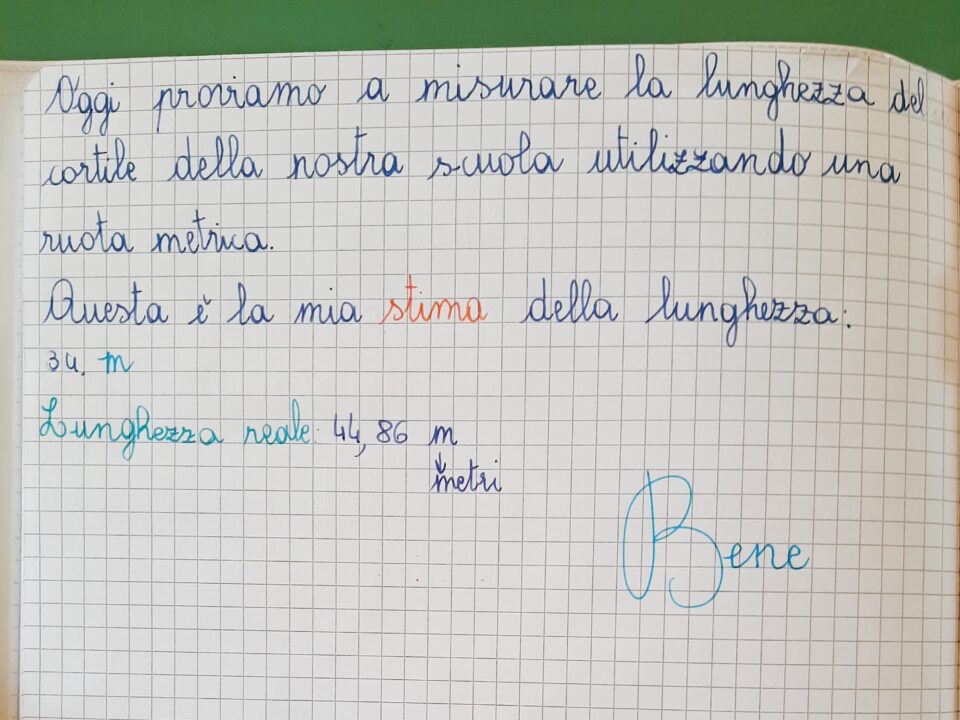 Oggi proviamo a misurare la lunghezza del
cortile della nostra scuola utilizzando una
ruota metrica.
Questa è la mia stima della lunghezza:
34. m
Lunghezza reale: 44,86 m
metri
Bene